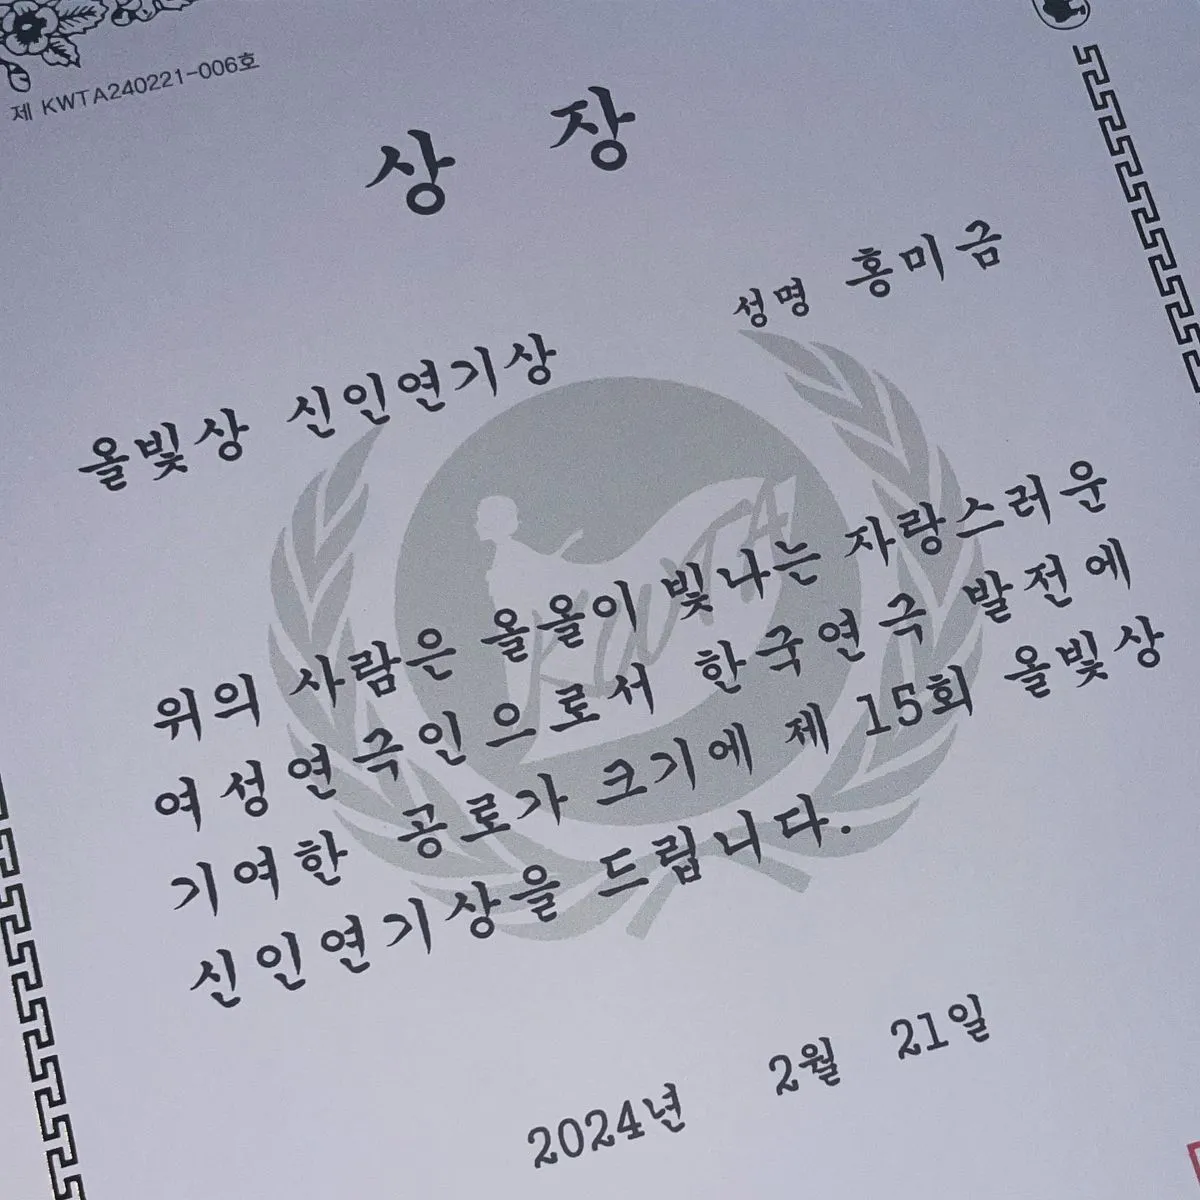 제 KWTA240221-006호
상 장
성명 홍미금
올빛상 신인연기상
KWTA
위의 사람은 올올이 빛나는 자랑스러운
여성연극인으로서 한국연극 발전에
기여한 공로가 크기에 제 15회 올빛상
신인연기상을 드립니다.
2024년 2월 21일